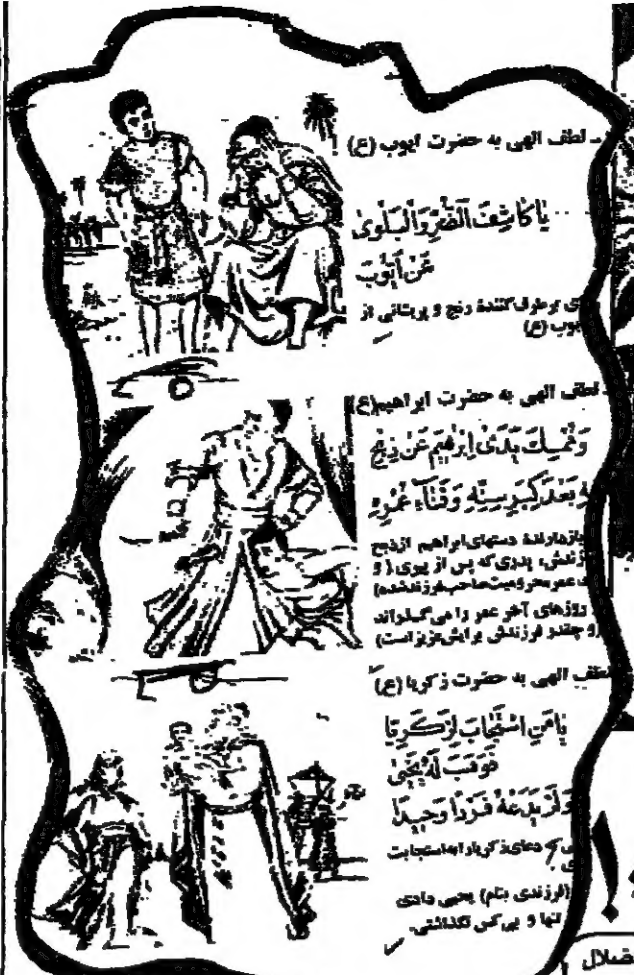 - لطف الهی به حضرت ایوب (ع)
یٰا کٰاشِفَ الضُّرِّ وَالْبَلْوىٰ
عَنْ أَیُّوبَ
ی برطرف‌کنندهٔ رنج و پریشانی از
یوب (ع)
لطف الهی به حضرت ابراهیم(ع)
وَمُمْسِكَ یَدَىْ اِبْرٰهیمَ عَنْ ذِبْحِ
هِ بَعْدَ كِبَرِ سِنِّهِ وَفَنٰاءِ عُمُرِهِ
بازدارندهٔ دستهای ابراهیم ازذبح
زندش، پدری که پس از پیری ( و
ی عمر محرومیت صاحب فرزند شده)
روزهای آخر عمر را می‌گذراند
(و چقدر فرزندش برایش عزیز است)
لطف الهی به حضرت زکریا (ع)
یٰا مَنِ اسْتَجٰابَ لِزَكَرِیّٰا
فَوَهَبَ لَهُ یَحْیىٰ
وَلَمْ یَدَعْهُ فَرْداً وَحیداً
که دعای زکریا را به استجابت
ی
(فرزندی بنام) یحیی دادی
تنها و بی کس نگذاشتی.
ضلال